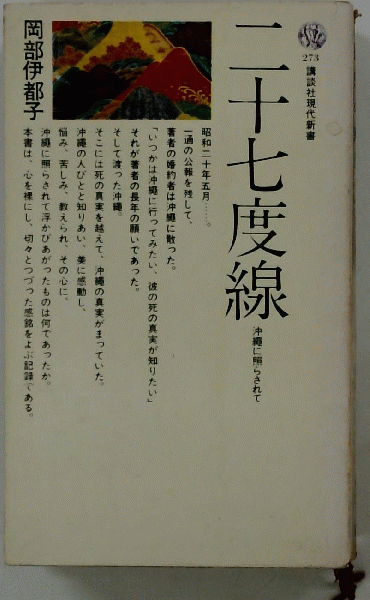 273
講談社現代新書
二十七度線
沖繩に照らされて
岡部伊都子
昭和二十年五月……。
一通の公報を残して、
著者の婚約者は沖繩に散った。
「いつかは沖繩に行ってみたい、彼の死の真実が知りたい」
それが著者の長年の願いであった。
そして渡った沖繩。
そこには死の真実を越えて、沖繩の真実がまっていた。
沖繩の人びとと知りあい、美に感動し、
悩み、苦しみ、教えられ、その心に、
沖繩に照らされて浮かびあがったものは何であったか。
本書は、心を裸にし、切々とつづった感銘をよぶ記録である。